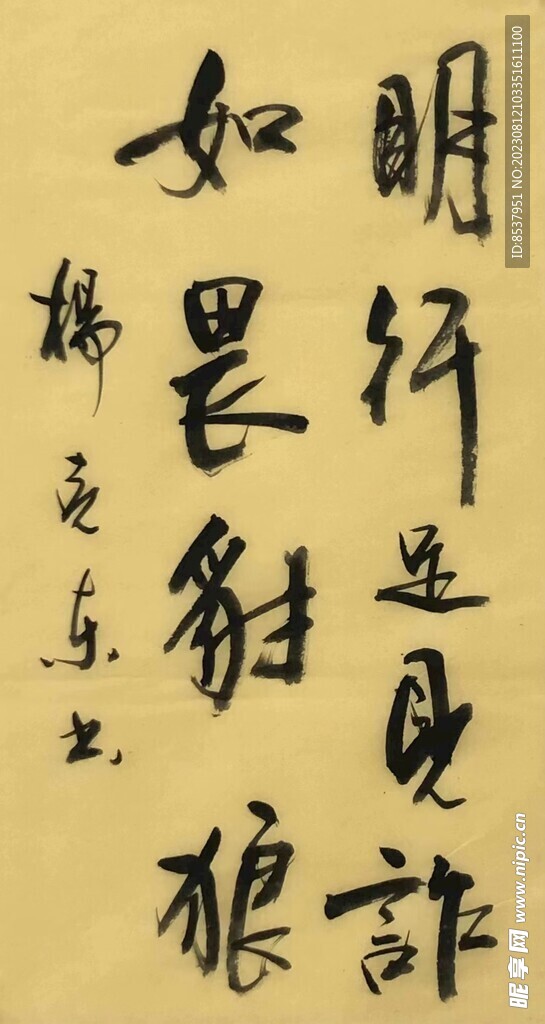 明行足見詐
如畏豺狼
楊克东书
ID:8537951 NO:20230812103351611100
昵享网 www.nipic.cn